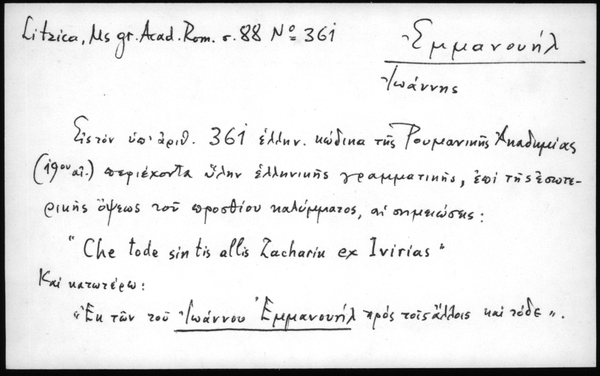 Litzica, Ms gr. Acad. Rom. σ. 88 Nº 361
Ἐμμανουήλ
Ἰωάννης
Εἰς τὸν ὑπ' ἀριθ. 361 ἑλλην. κώδικα τῆς Ρουμανικῆς Ἀκαδημίας
(19ου αἰ.) περιέχοντα ὕλην ἑλληνικῆς γραμματικῆς, ἐπὶ τῆς ἐσωτε-
ρικῆς ὄψεως τοῦ προσθίου καλύμματος, αἱ σημειώσεις:
"Che tode sin tis allis Zachariu ex Ivirias"
Καὶ κατωτέρω:
"Ἐκ τῶν τοῦ Ἰωάννου Ἐμμανουήλ πρὸς τοῖς ἄλλοις καὶ τόδε".